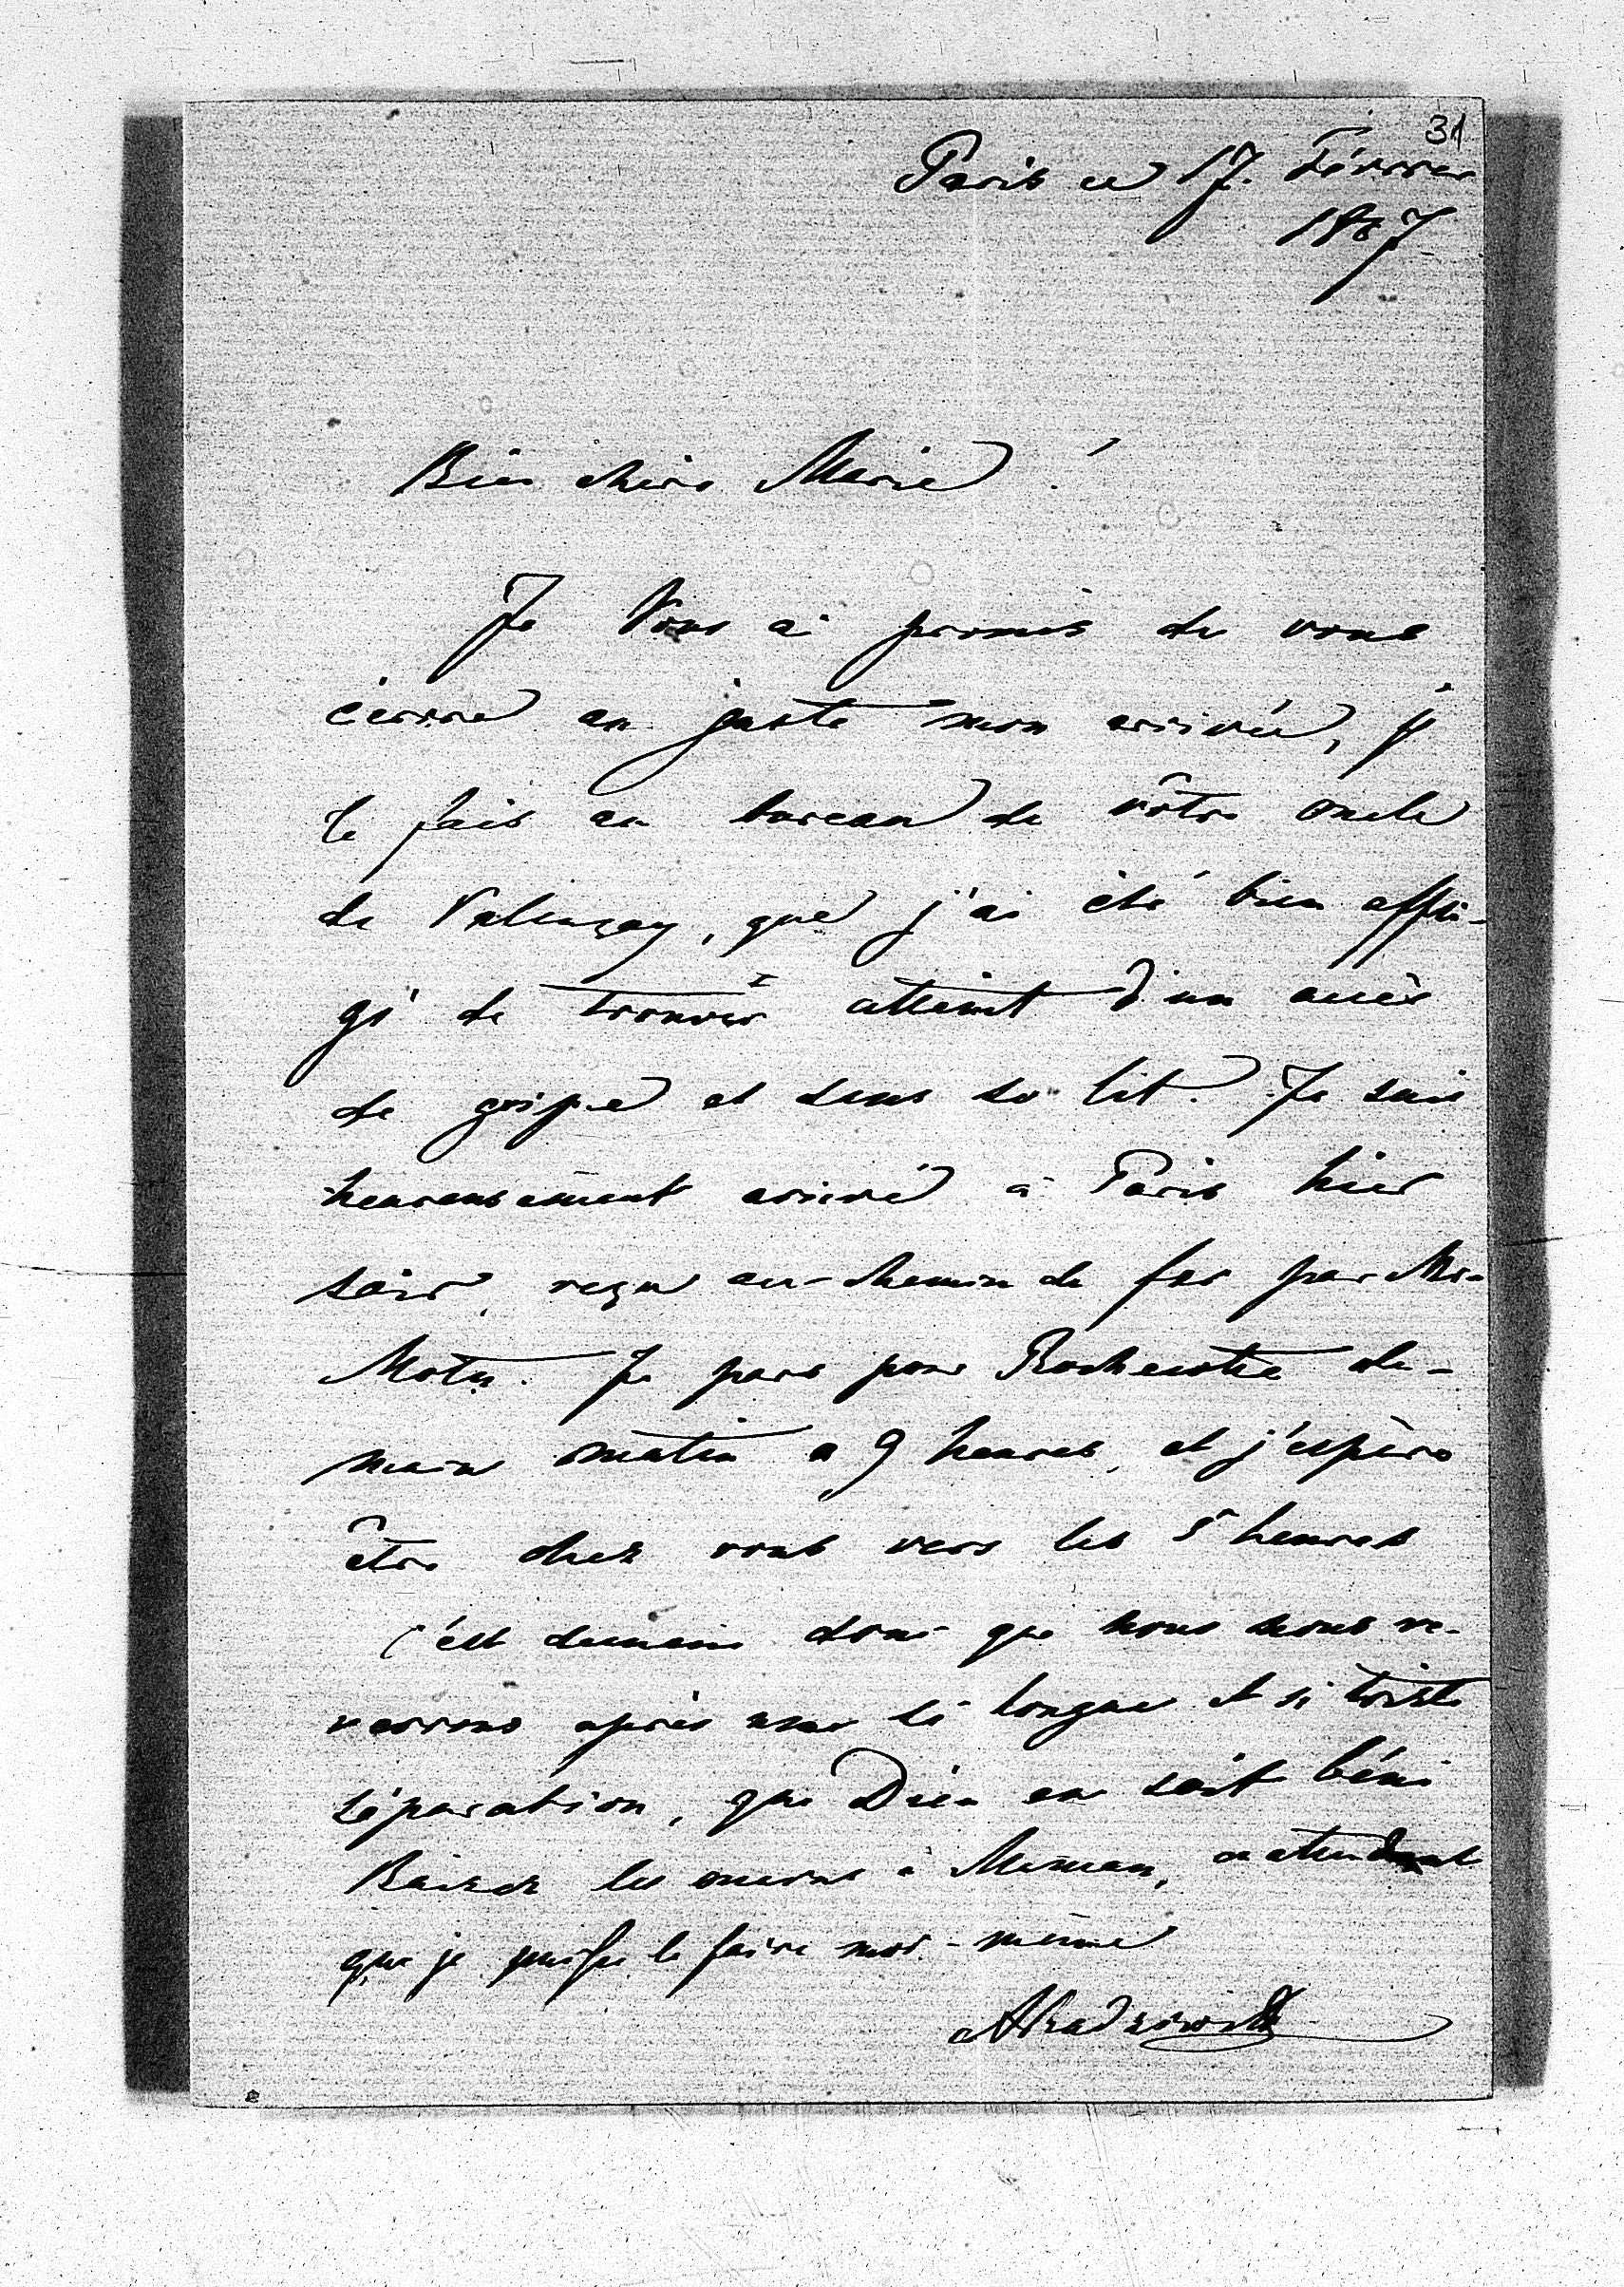 31
Paris ce 17. Février
1857
Bien chère Marie !
Je Vous ai promis de vous
écrire au juste mon arrivée, je
le fais au bureau de vôtre oncle
de Valençay, que j'ai été bien affli-
gé de trouver atteint d'un accès
de grippe et dans so lit. Je suis
heureusement arrivé à Paris hier
soir, reçu au chemin de fer par Mr.
Je pars pour Rochecotte de-
main matin a 9 heures, et j'espère
être chez vous vers les 5 heures
c'est demain donc que nous nous re-
verrons après une si longue et si triste
séparation, que Dieu en soit béni
Baisez les mains à Maman, en attendant
que je puisse le faire moi-même